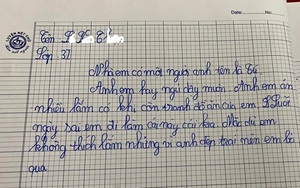 Date: No:
Tên
Lớp: 3
Nhà em có một người anh tên là
Anh em hay ngủ dậy muộn. Anh em ăn
nhiều lắm có khi còn tranh đồ ăn của em
ngày sai em đi làm cái này cái kia. Mặc dù em
không thích lắm nhưng vì anh đẹp trai nên em
qua